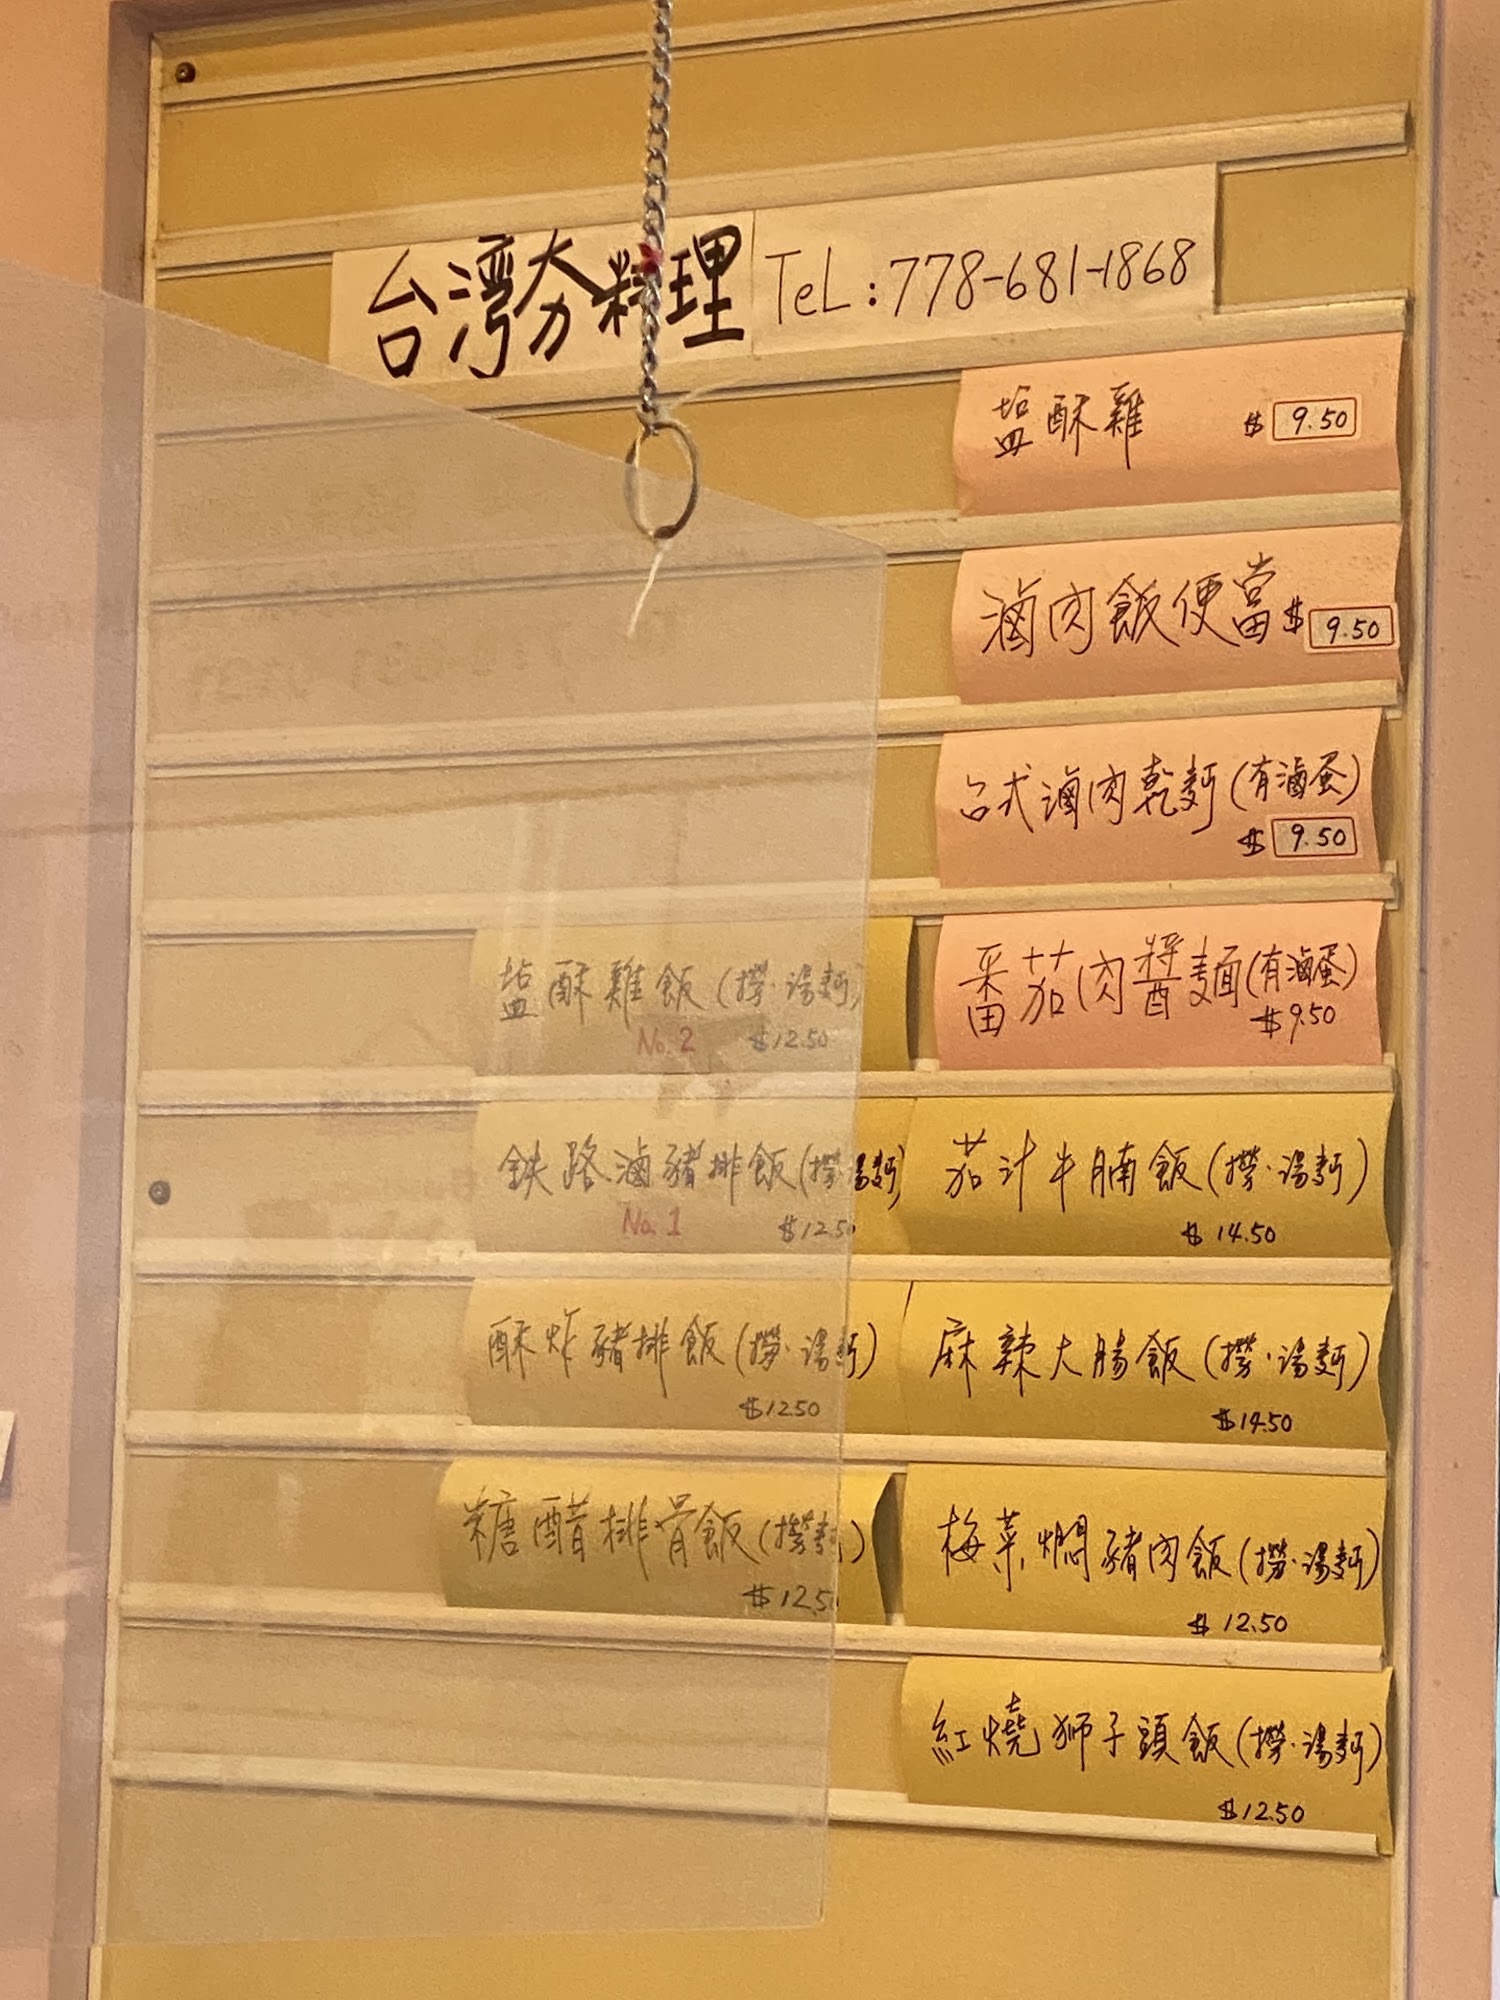 台灣夯料理 TeL:778-681-1868
塩酥雞 $ 9.50
滷肉飯便當 $ 9.50
台式滷肉乾麪(有滷蛋)
$ 9.50
番茄肉醬麵(有滷蛋)
$9.50
塩酥雞飯(撈·湯麪)
No.2 $12.50
鉄路滷豬排飯(撈·湯麪)
No.1 $12.50
酥炸豬排飯(撈·湯麪)
$12.50
糖醋排骨飯(撈麪)
$12.50
茄汁牛腩飯(撈·湯麪)
$ 14.50
麻辣大腸飯(撈·湯麪)
$14.50
梅菜焖豬肉飯(撈·湯麪)
$ 12.50
紅燒狮子頭飯(撈·湯麪)
$12.50